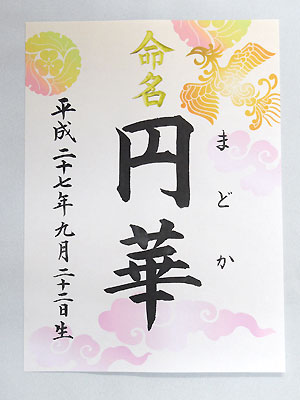 命名
円華
まどか
平成二十七年九月二十二日生